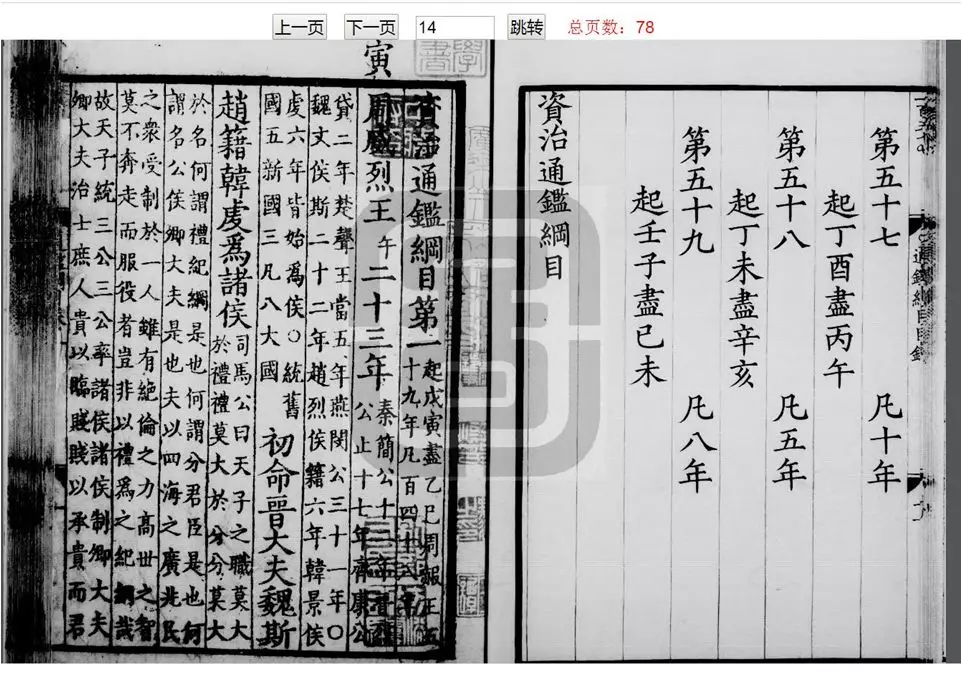 上一页 下一页 14 跳转 总页数：78
通鑑綱目目錄
第五十七
起丁酉盡丙午 凡十年
第五十八
起丁未盡辛亥 凡五年
第五十九
起壬子盡己未 凡八年
資治通鑑綱目
寅
資治通鑑綱目第一 起戊寅盡乙巳周赧王五
十九年凡百四十八年
周威烈王 午 二十三年 秦簡公十二年晉
公止十七年齊康公
貸二年楚聲王當五年燕閔公三十一年○
魏文侯斯二十二年趙烈侯籍六年韓景侯
虔六年皆始爲侯○統舊
國五新國三凡八大國 初命晉大夫魏斯
趙籍韓虔爲諸侯 司馬公曰天子之職莫大
於禮禮莫大於分分莫大
於名何謂禮紀綱是也何謂分君臣是也何
謂名公侯卿大夫是也夫以四海之廣兆民
之衆受制於一人雖有絶倫之力高世之智
莫不奔走而服役者豈非以禮爲之紀綱哉
故天子統三公三公率諸侯諸侯制卿大夫
卿大夫治士庶人貴以臨賤賤以承貴而君